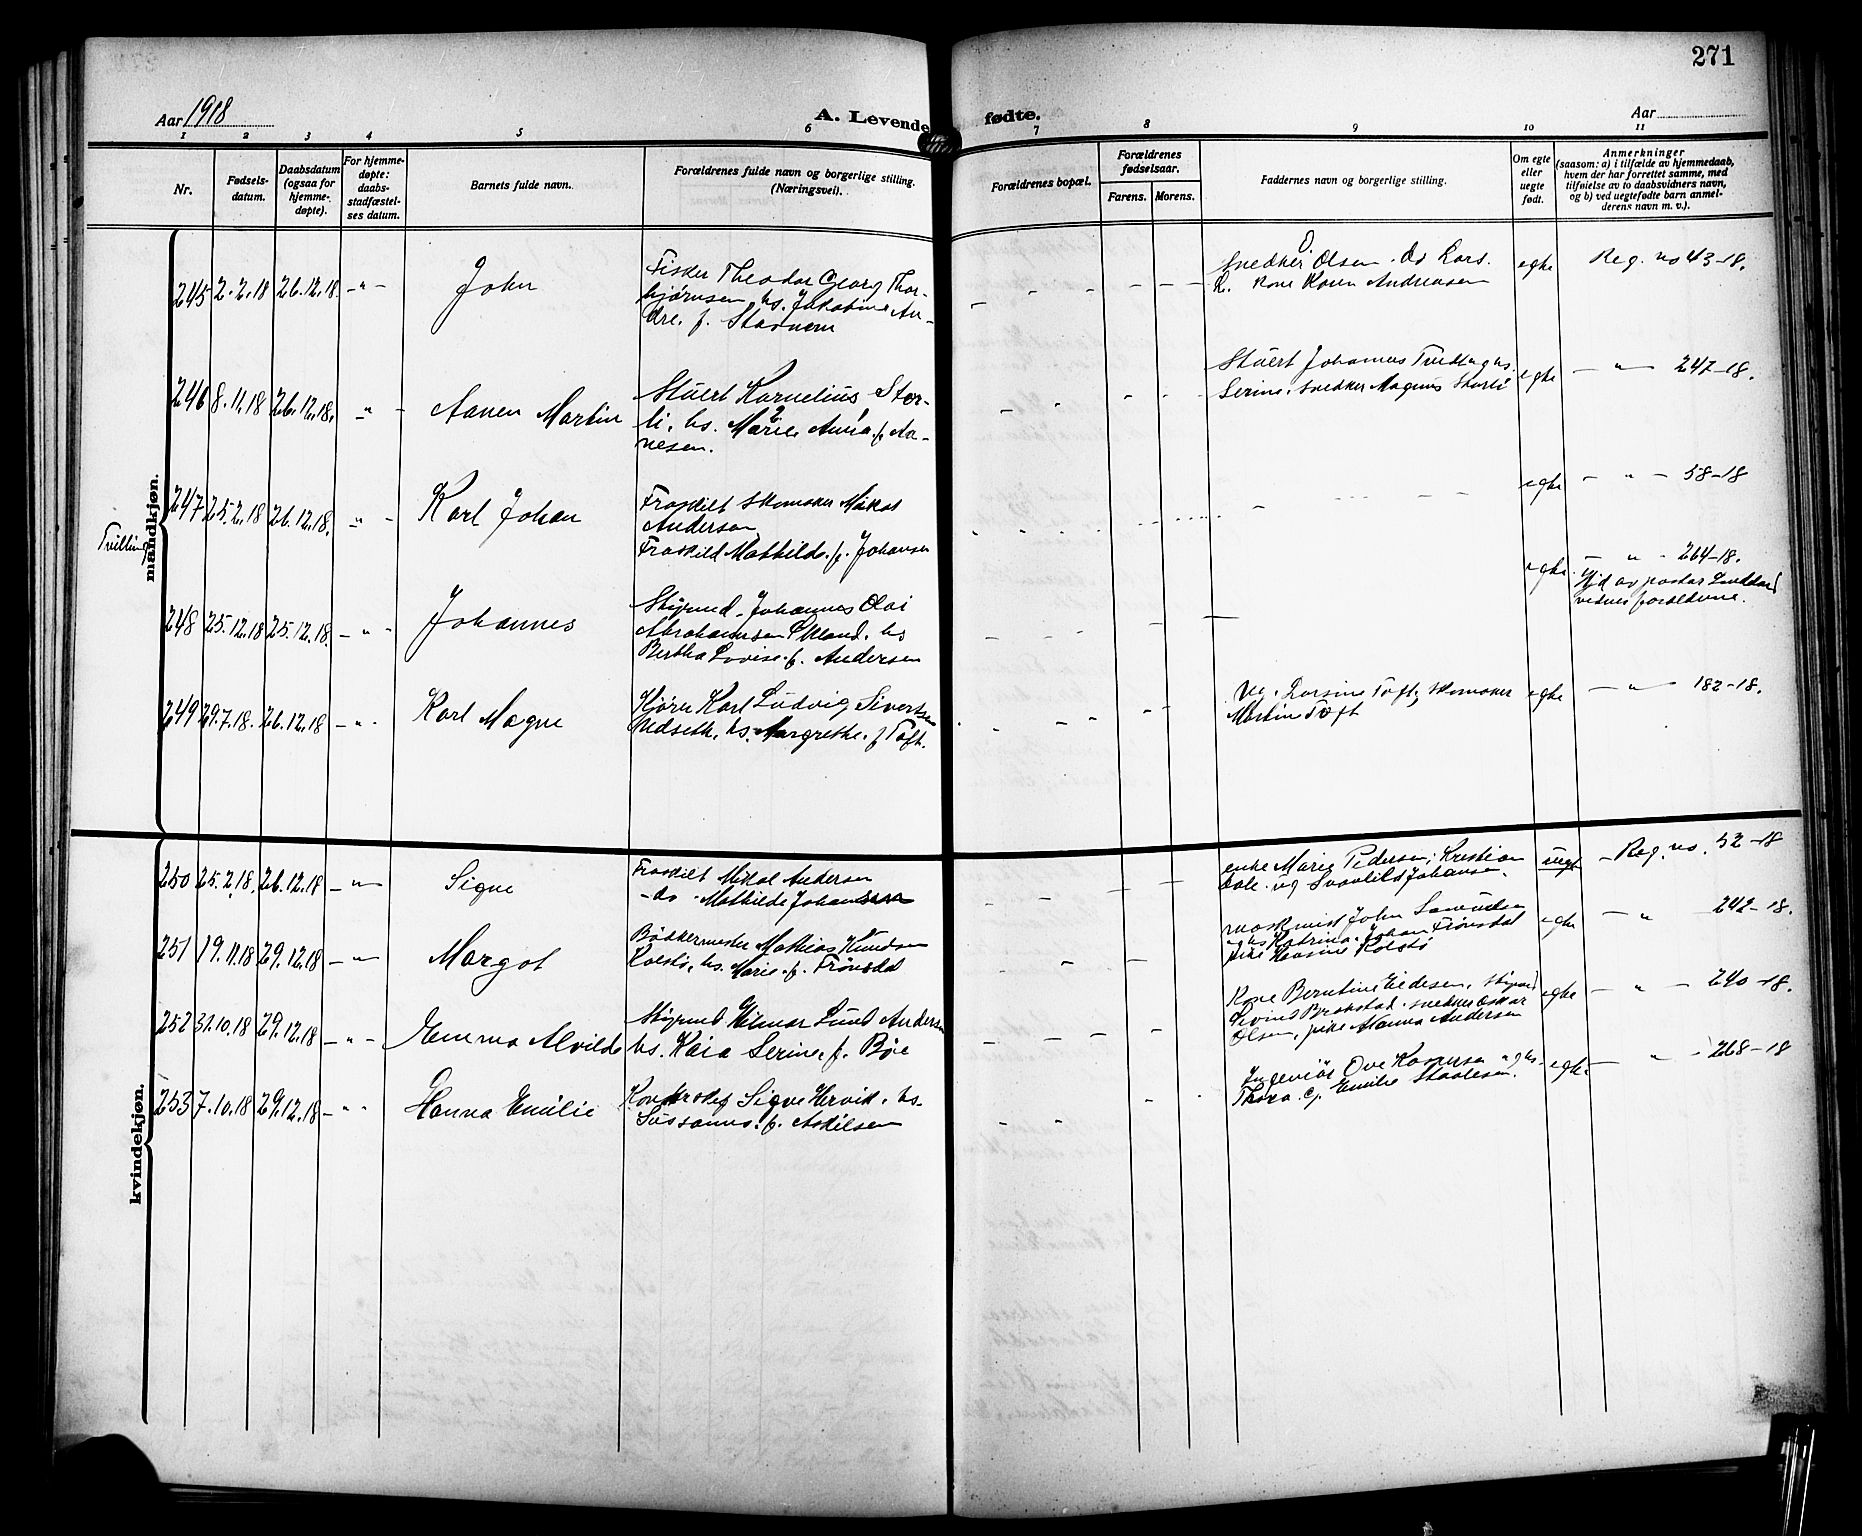 271
Aar 1918
A. Levende fødte.
Aar
1 2 3 4 5 6 7 8 9 10 11
Nr.
Fødsels-
datum.
Daabsdatum
(ogsaa for
hjemme-
døpte).
For hjemme-
døpte:
daabs-
stadfæstel-
ses datum.
Barnets fulde navn.
Forældrenes fulde navn og borgerlige stilling.
(Næringsvei).
Forældrenes bopæl.
Forældrenes
fødselsaar.
Farens. Morens.
Faddernes navn og borgerlige stilling.
Om egte
eller
uegte
født.
Anmerkninger
(saasom: a) i tilfælde av hjemmedaab,
hvem der har forrettet samme, med
tilføielse av to daabsvidners navn,
og b) ved uegtefødte barn anmel-
derens navn m. v.).
mandkjøn.
245 2.2.18 26.12.18. - " - John
Fisker Theodor Georg Thor-
bjørnsen, hs. Jakobine An-
dre. f. Stavnem
Snedker Olsen. do Lars.
K. Kone Karen Andreasen
egte
Reg. no 43-18.
246 8.11.18 26.12.18. " - Aanen Martin
Stuert Kornelius Stor-
li, hs. Marie Anna f. Aa-
nesen.
Stuert Johannes Tvedt og hs.
Serine, snedker Magnus
egte
- " - 247-18.
Tvilling
247 25.2.18 26.12.18. - " - Karl Johan
Fraskilt skomaker Mikal
Andersen
Fraskild Mathilde f. Johansen
egte
- " - 58-18
248 25.12.18 25.12.18. - " - Johannes
Skipsmd. Johannes Olai
Abrahamsen hs
Bertha Lovise f. Andersen
egte
- " - 264-18.
Hjd av pastor
vidner forældrene.
249 29.7.18. 26.12.18 - " - Karl Magne
Kjører Karl Ludvig Sivertsen
Midseth, hs. Margrethe f Toft.
Ug. Larsine Toft, skomaker
Martin Toft
egte
- " - 182-18.
kvindekjøn.
250 25.2.18 26.12.18 - " - Signe
Fraskilt Mikal Andersen
- do - Mathilde Johansen
enke Marie Pedersen, Kristian
Dale. ug Svanhild Johansen.
uegt
- Reg. no. 52-18
251 19.11.18 29.12.18 - " - Margot
Bødkermester Mathias Knudsen
Kolstø, hs. Marie f. Frønsdal
maskinist John Samuelsen
og hs Katrina. Johan Frønsdal
pike Hansine Kolstø
egte
- " - 242-18.
252 31.10.18 29.12.18 - " - Emma Alvilde
Skipsmd Hilmar Lund Andersen
hs. Kaia Serine f. Bøe
Kone Berntine Eidesen, skipsmd
Sivind Brekstad. snedker Oskar
Olsen, pike Hanna Andersen
egte
- " - 240-18.
253 7.10.18 29.12.18 - " - Hanna Emilie
Kontrolør Sigve Hervik, hs.
Sussanne f. Askilsen
Ingeniør Ove Kaspersen og hs.
Thora. Emilie Staalesen.
egte
- " - 268-18